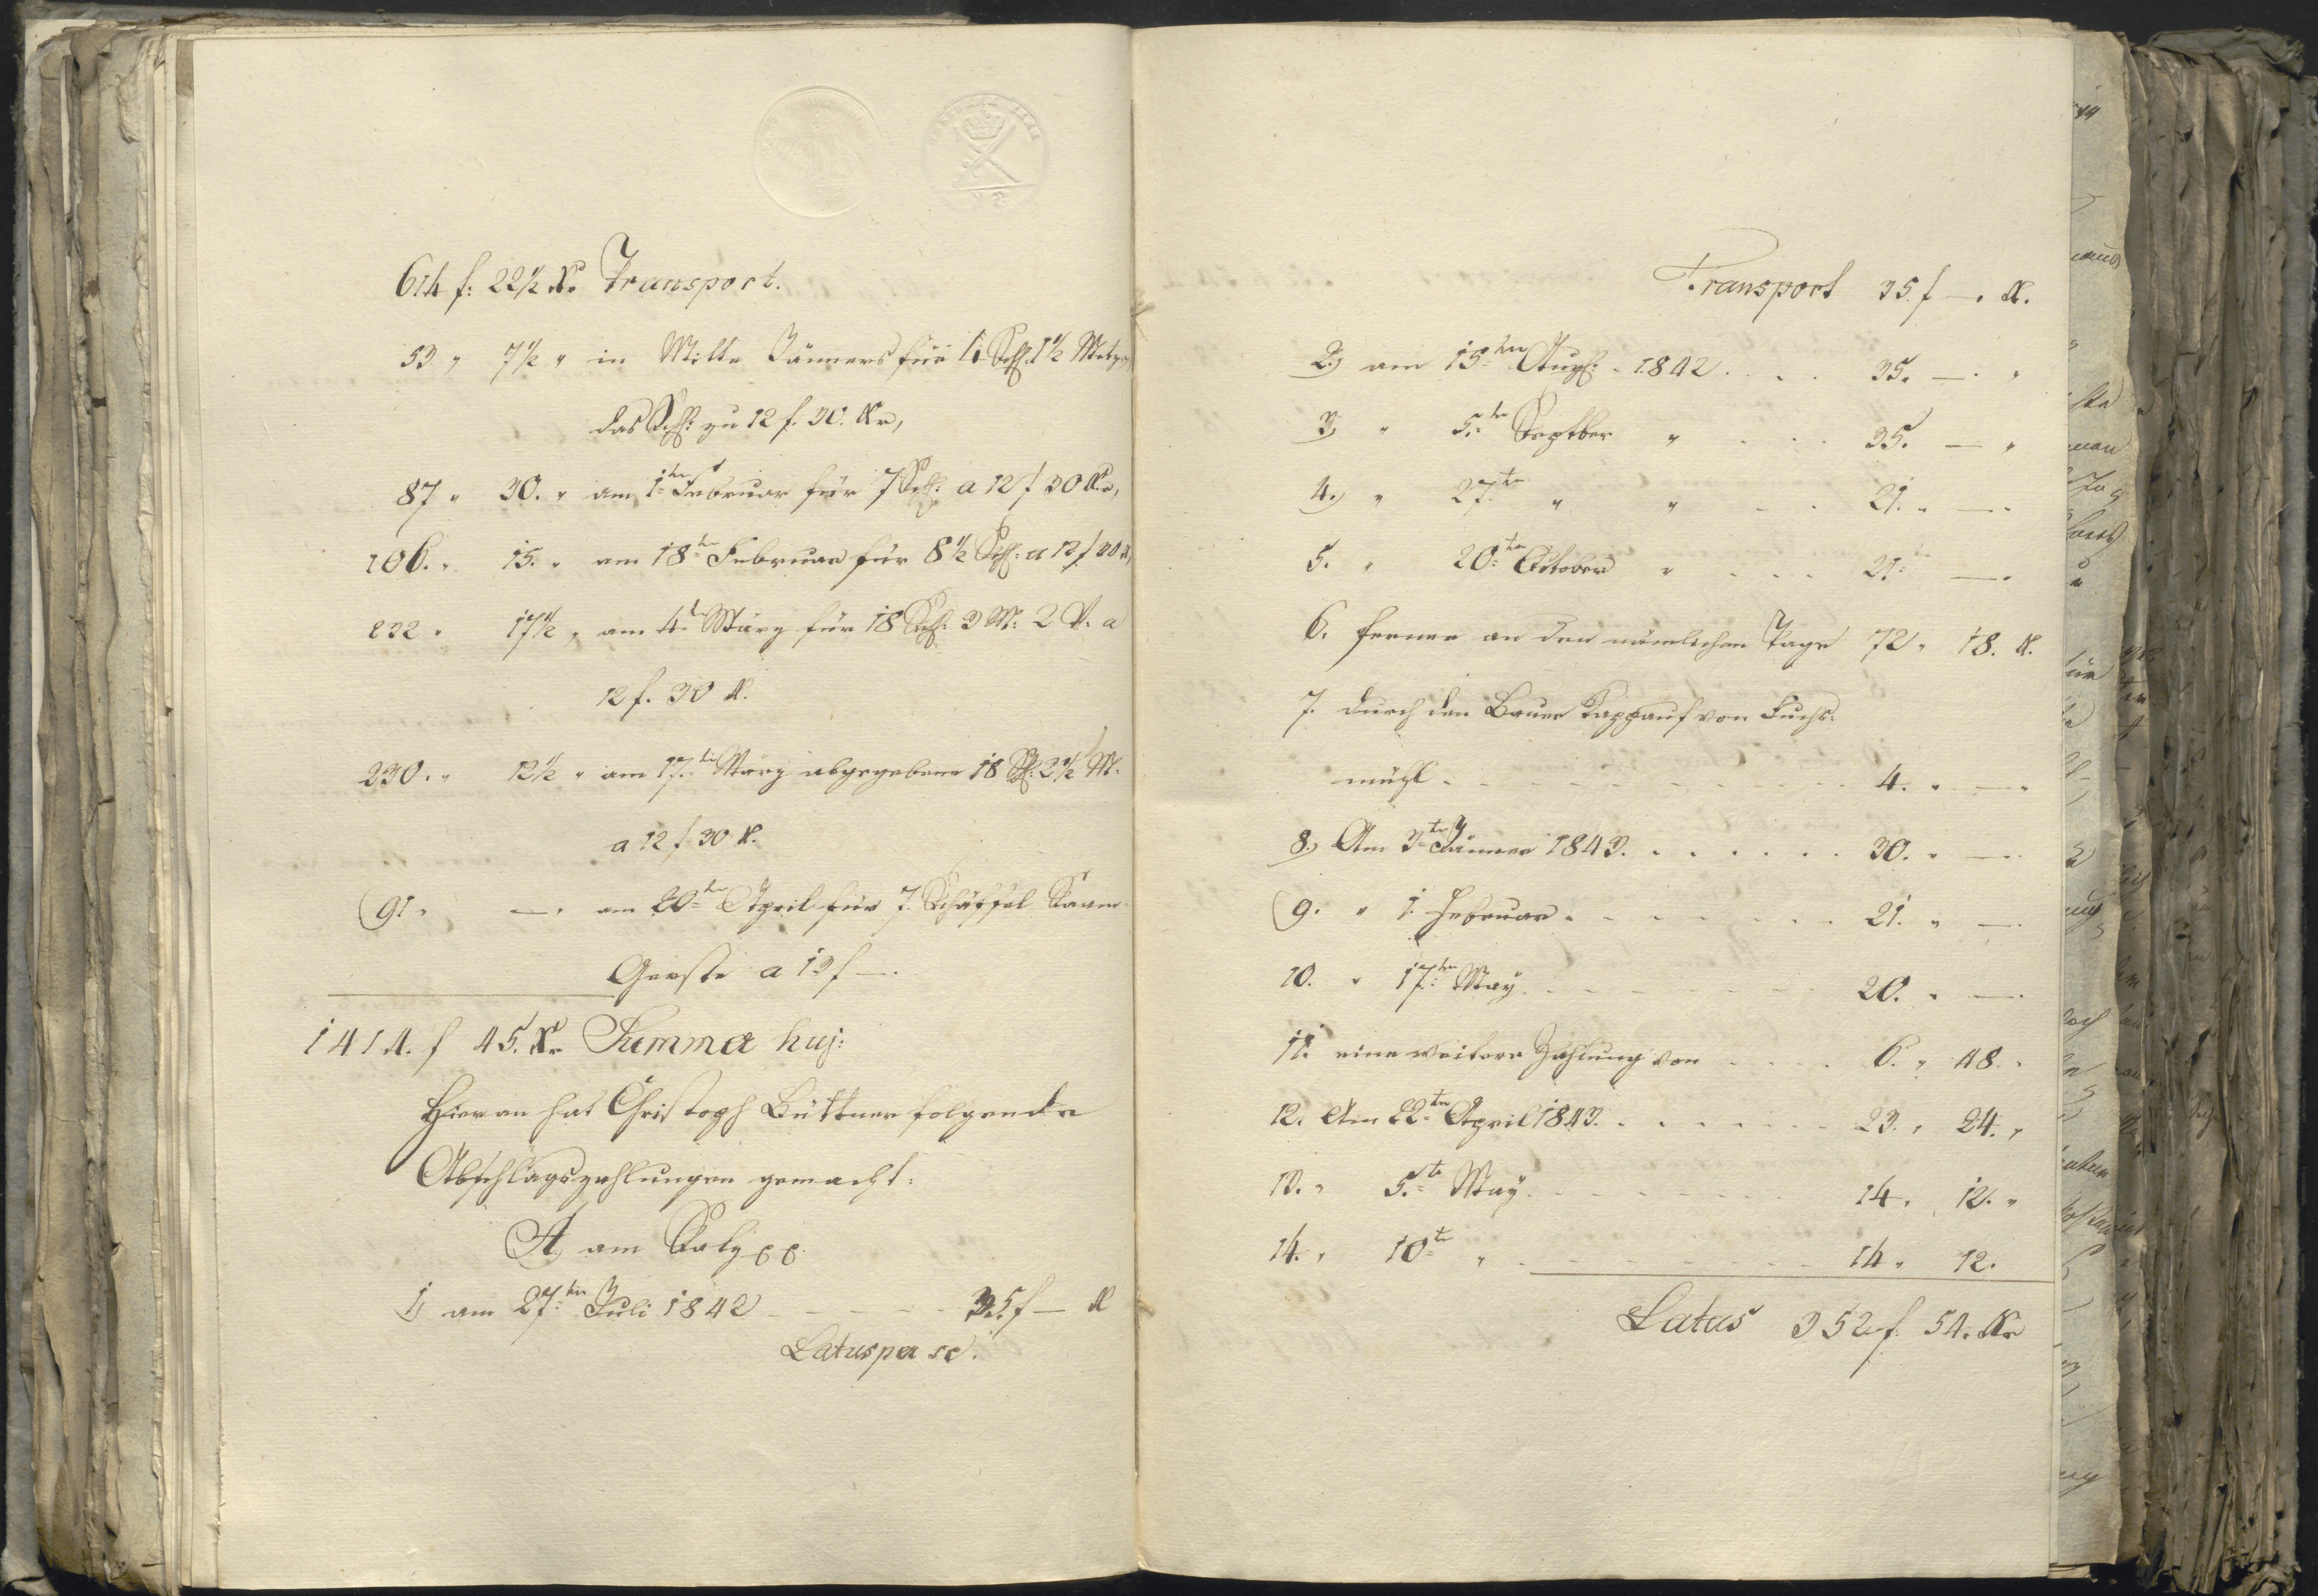 614 f: 22½ Kr Transport.
53 „ 7½ „ in Mitte Jänners für 4 Schf: 1½ Metz.
das Schf: zu 12 f. 30. Kr,
87 „ 30. „ am 1ten Februar für 7 Schf: a 12 f 30 Kr,
106. „ 15. „ am 18ten Februar für 8½ Schf: a 12 f 30 K,
232 „ 17½ „ am 4ten März für 18 Schf: 3 M: 2 V. a
12 f. 30 K.
230. „ 12½ „ am 17ten März abgegebene 18 Schf: 2½ M.
a 12 f 30 K.
91 „ —. am 20ten April für 7. Schäffel Saam
Gerste a 13 f —.
1414. f 45. Kr Summa huj:
Hieran hat Christoph Büttner folgende
Abschlagszahlungen gemacht:
A, am Salz
1, am 27ten Juli 1842 - - - - - 35 f — K
Latus per se.
Transport 35. f —. K.
2.) am 15ten Augs: 1842. . . . 35. —. „
3, „ 5ten Septber „ . . . 35. — „
4.) „ 27.ten „ „ . . 21. „ —.
5. „ 20ten October „ . . . . 21: —.
6. ferner an den nämlichen Tage 72 „ 18. K.
7. durch den Bauer Kappauf von Fuchs-
mühl - - - - - - - - 4. „ —.
8.) Am 3ten Jänner 1843. . . . . . . 30. „ —.
9. „ 1. Februar - - - - - - - 21. „ —.
10. „ 17ten May - - - - - - - 20. „ —.
11. eine weitere Zahlung von - - - - 6. „ 48. „
12. Am 22ten April 1843. . . . . . . 23. „ 24. „
13. „ 5.te May - - - - - - - 14 „ 12. „
14. „ 10te „ - - - - - - - 14 „ 12.
Latus 352 f. 54. Kr